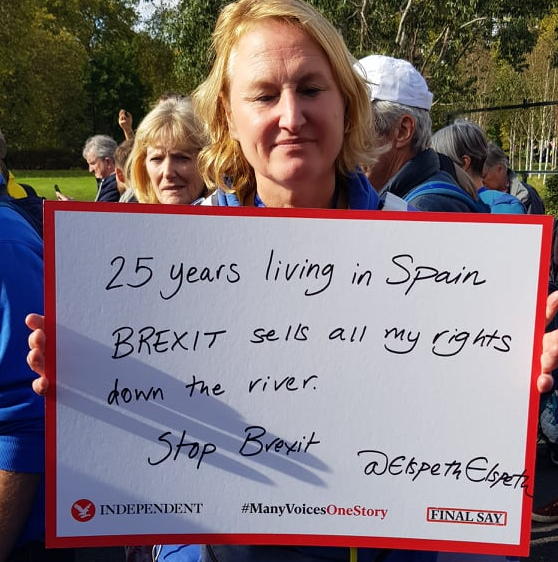 25 years living in Spain
BREXIT sells all my rights
down the river.
Stop Brexit
@ElspethElspeth
INDEPENDENT #ManyVoicesOneStory FINAL SAY